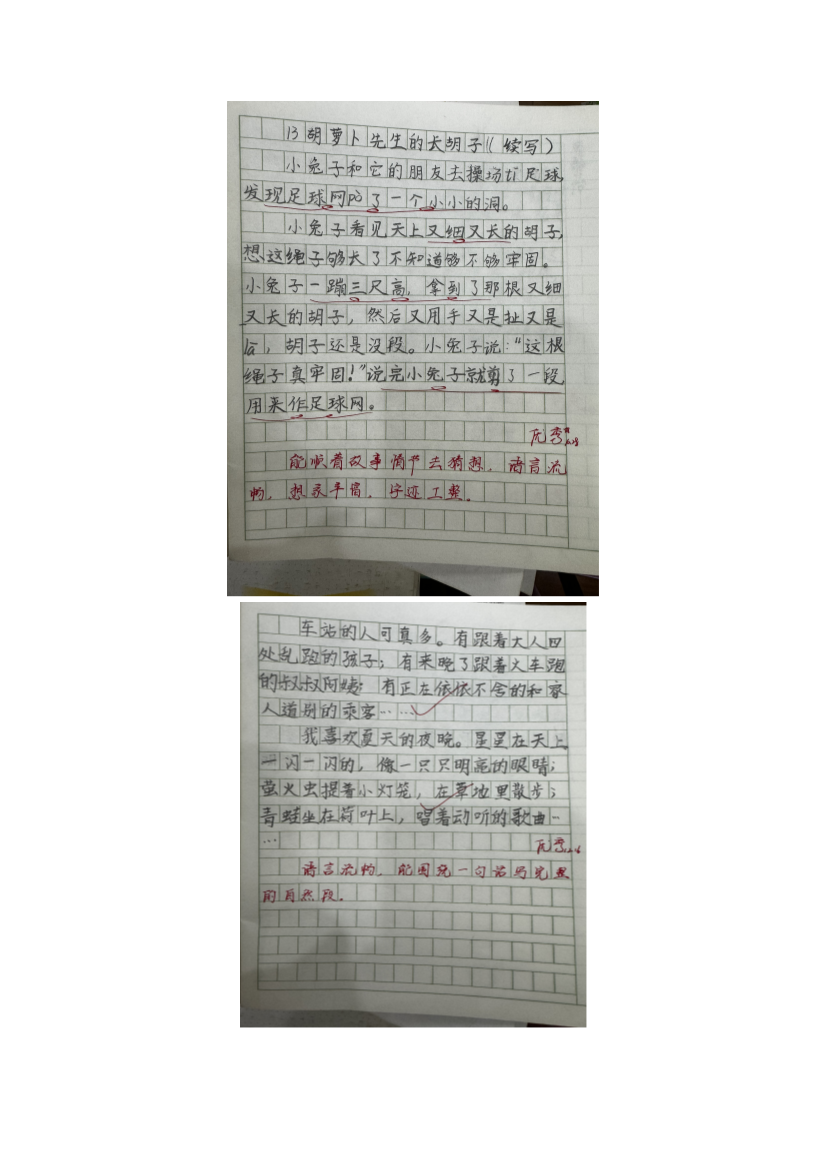 13胡萝卜先生的长胡子(续写)
小兔子和它的朋友去操场tī足球,
发现足球网pò了一个小小的洞。
小兔子看见天上又细又长的胡子,
想,这绳子够长了不知道够不够牢固。
小兔子一蹦三尺高,拿到了那根又细
又长的胡子,然后又用手又是扯又是
lā,胡子还是没段。小兔子说:“这根
绳子真牢固!”说完小兔子就剪了一段,
用来作足球网。
优秀
能顺着故事情节去猜想,语言流
畅,想象丰富,字迹工整。
车站的人可真多。有跟着大人四
处乱跑的孩子;有来晚了跟着火车跑
的叔叔阿姨;有正在依依不舍的和家
人道别的乘客……
我喜欢夏天的夜晚。星星在天上
一闪一闪的,像一只只明亮的眼睛;
萤火虫提着小灯笼,在草地里散步;
青蛙坐在荷叶上,唱着动听的歌曲…
…
优秀
语言流畅,能围绕一句话写完整
的自然段。